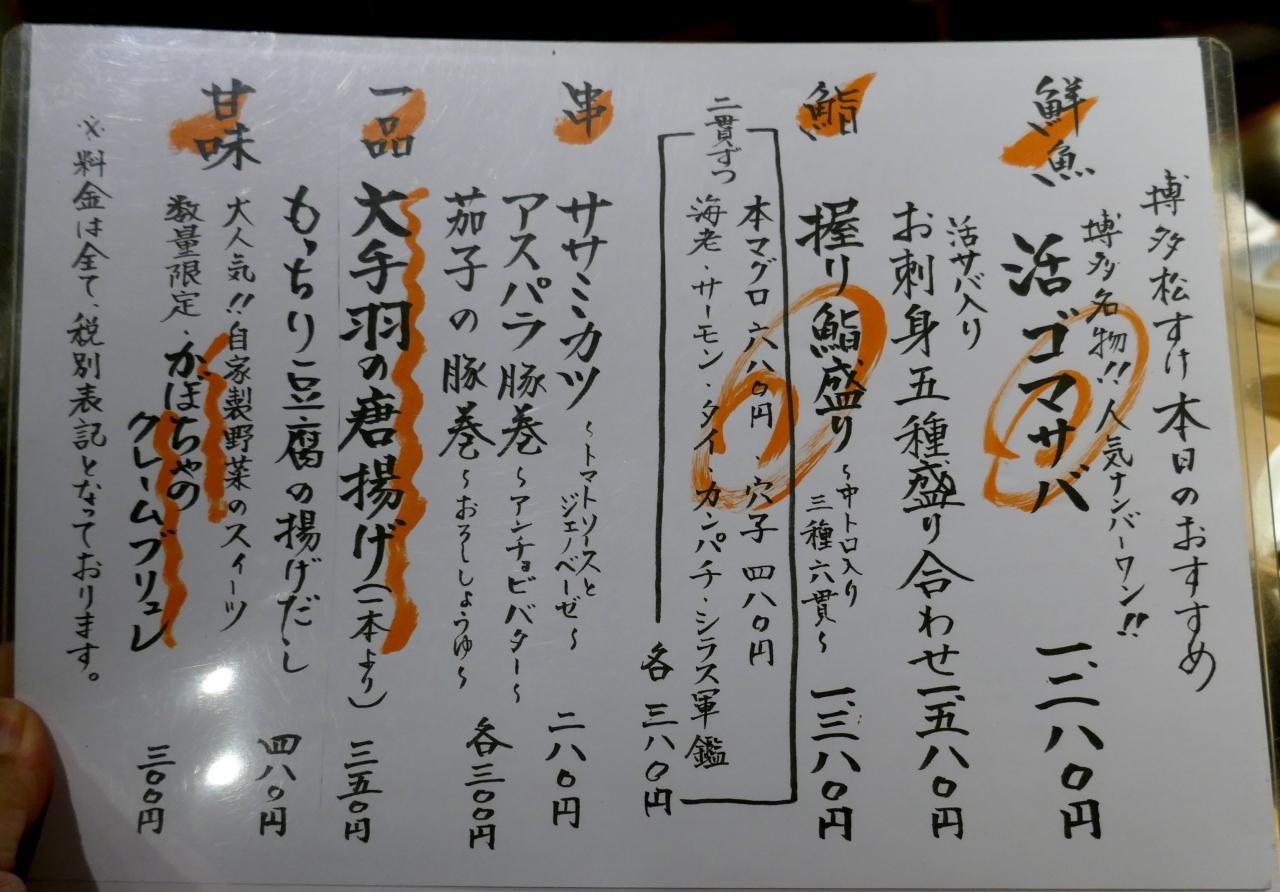 博多松すけ本日のおすすめ
鮮魚
博多名物!!人気ナンバーワン!!
活ゴマサバ 一、二八〇円
活サバ入り
お刺身五種盛り合わせ 一、五八〇円
鮨
握り鮨盛り 〜中トロ入り 三種六貫〜 一、三八〇円
二貫ずつ
本マグロ 六八〇円、穴子 四八〇円
海老・サーモン・タイ・カンパチ・シラス軍鑑
各 三八〇円
串
ササミカツ 〜トマトソースとジェノベーゼ〜 二八〇円
アスパラ豚巻 〜アンチョビバター〜
茄子の豚巻 〜おろししょうゆ〜 各三〇〇円
一品
大手羽の唐揚げ(一本より) 三五〇円
もっちり豆腐の揚げだし 四八〇円
甘味
大人気!!自家製野菜のスイーツ
数量限定・かぼちゃの
クレームブリュレ 三〇〇円
※料金は全て、税別表記となっております。